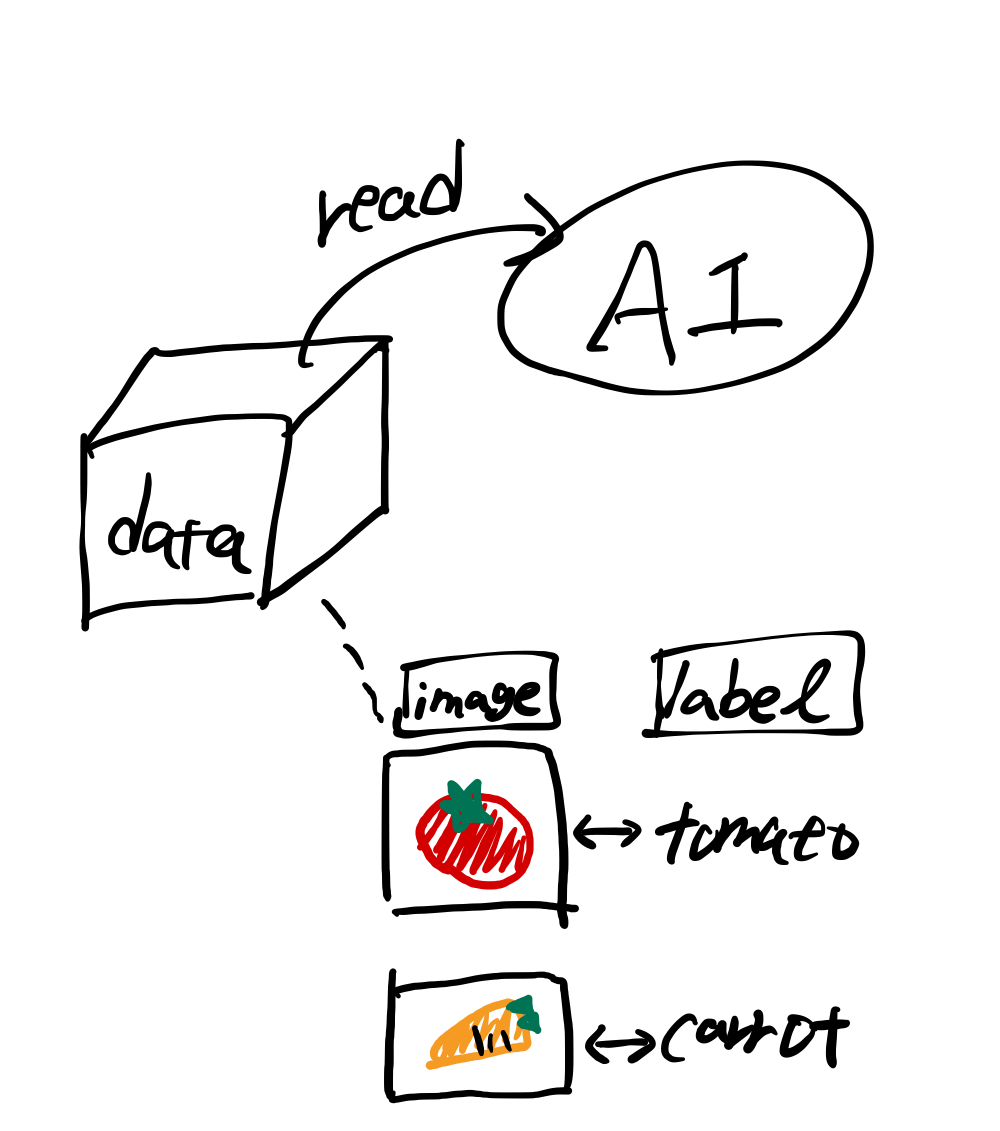 read
AI
data
image
label
tomato
carrot